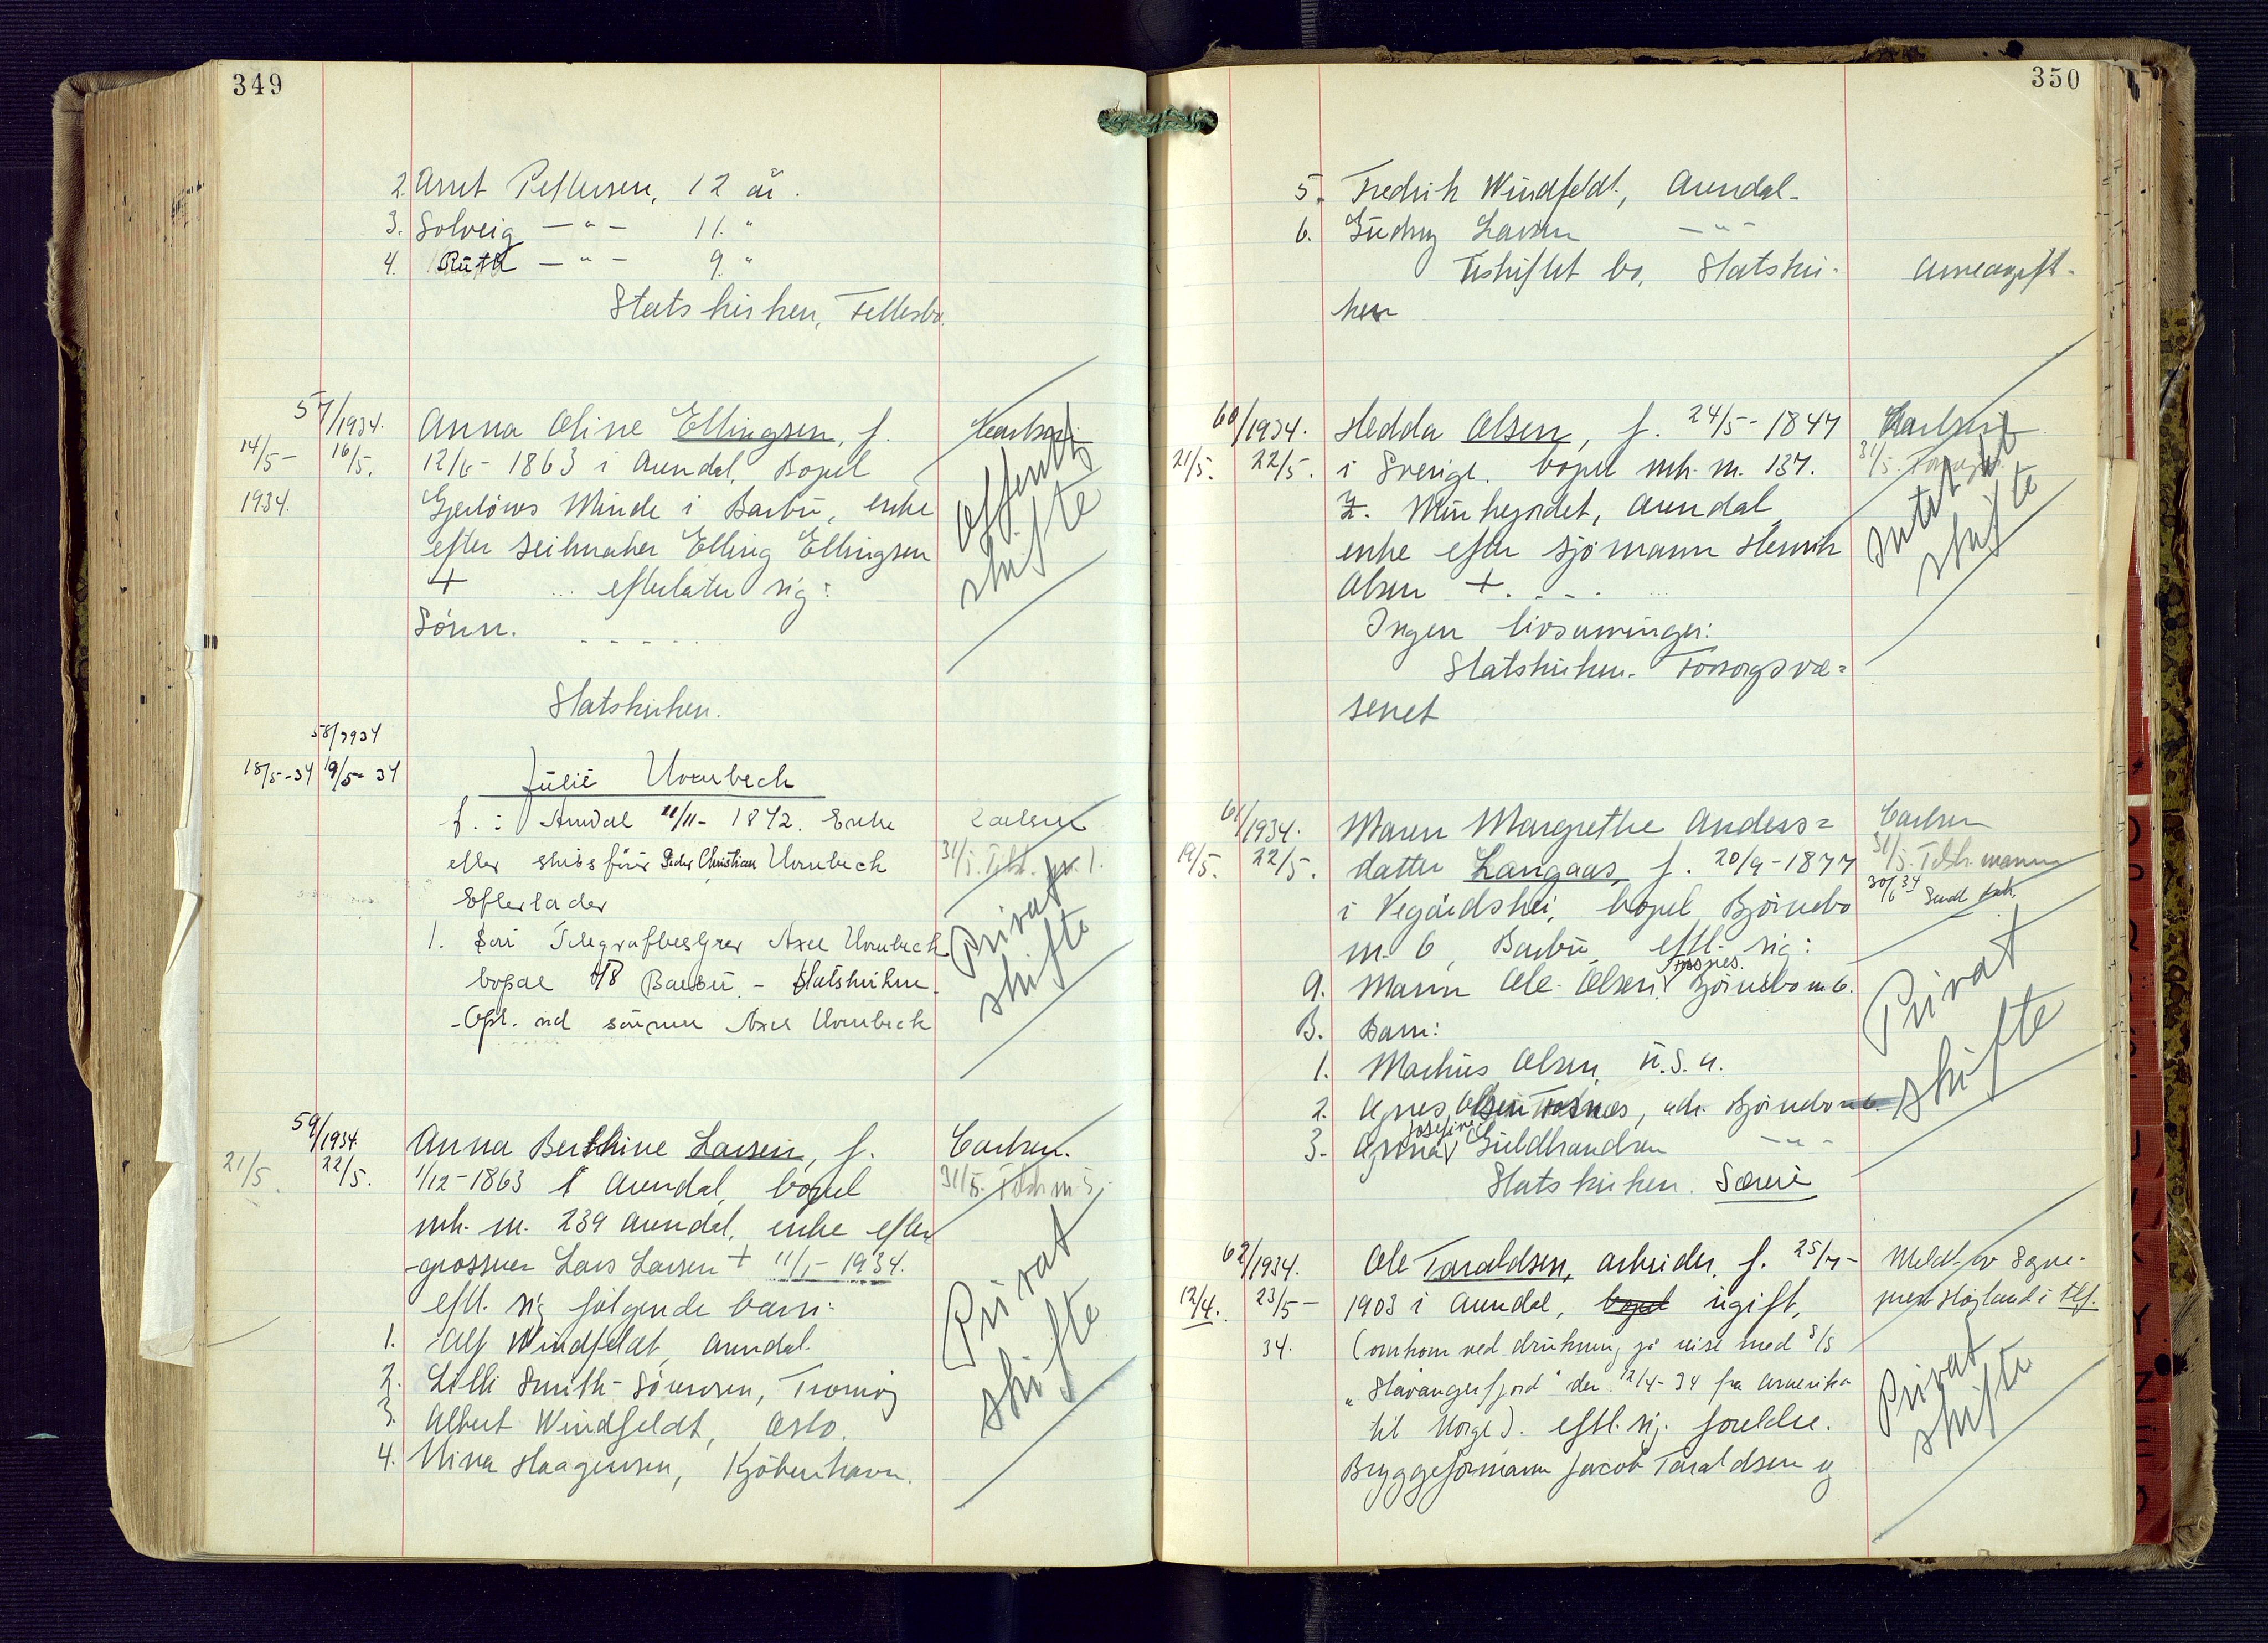 349
2. Arnt Pettersen, 12 år.
3. Solveig — " — 11. "
4. Ruth — " — 9. "
Statskirken, Fellesbo.
57/1934.
14/5- 16/5.
1934.
Anna Oline Ellingsen, f.
12/6 - 1863 i Arendal, Bopel
Gjerlöws Minde i Barbu, enke
efter seilmaker Elling Ellingsen
+ ... efterlater sig:
Sönn. - - - - -
Statskirken.
Carlsen
Offentlig
skifte
58/1934
18/5-34 19/5-34
Julie Uvenbech
f. i Arendal 11/11- 1872. Enke
efter skibsförer Peder Christian Uvenbech
Efterlader
1. Sön Telegrafbestyrer Axel Uvenbech
bopæl Barbu - Statskirken.
-Opl. ved sönnen Axel Uvenbech
Carlsen
31/5. Tilsk. nr. 1.
Privat
skifte
59/1934.
21/5. 22/5.
Anna Berthine Larsen, f.
1/12-1863 i Arendal, bopel
mk. nr. 239 Arendal, enke efter
grosserer Lars Larsen + 11/1- 1934.
eftl. sig følgende barn:
1. Alf Windfeldt, Arendal.
2. Lilli Smith-Sörensen, Tromöy
3. Albert Windfeldt, Oslo.
4. Mina Haagensen, Kjöbenhavn.
Carlsen.
31/5. Tilsk. nr 5.
Privat
skifte
350
5. Fredrik Windfeldt, Arendal.
6. Gudny Larsen — " —
Uskiftet bo. Statskir-
ken
Arneavgift.
60/1934.
21/5. 22/5.
Hedda Olsen, f. 24/5-1847
i Sverige. bopel mk. nr. 137.
Munkejordet, Arendal,
enke efter sjömann Henrik
Olsen +. - - .
Ingen livsarvinger:
Statskirken. Forsorgsvæ=
senet
Carlsen
31/5.
Intet
skifte
61/1934.
19/5. 22/5.
Maren Margrethe Anders=
datter Langaas, f. 20/9-1877
i Vegårdshei, bopel Björnebo
nr. 6, Barbu, eftl. sig:
A. Mann Ole Olsen Fosnes. Björnebo nr. 6.
B. Barn:
1. Markus Olsen, U.S.A.
2. Agnes Olsen Fosnæs, adr. Björnebo nr. 6.
3. Agnna Josefine Guldbrandsen — " —
Statskirken. Særeie
Carlsen
31/5. Tilsk. mannen
30/6 34 Sendt
Privat
skifte
62/1934.
12/4. 23/5-
34.
Ole Taraldsen, arbeider, f. 25/7-
1903 i Arendal, bopel ugift,
(omkom ved drukning på reise med S/S
"Stavangerfjord" den 12/4-34 fra Amerika
til Norge). eftl. sig. foreldre.
Bryggeformann Jacob Taraldsen og
Meldt av Sogne-
prest Höyland i tlf.
Privat
skifte